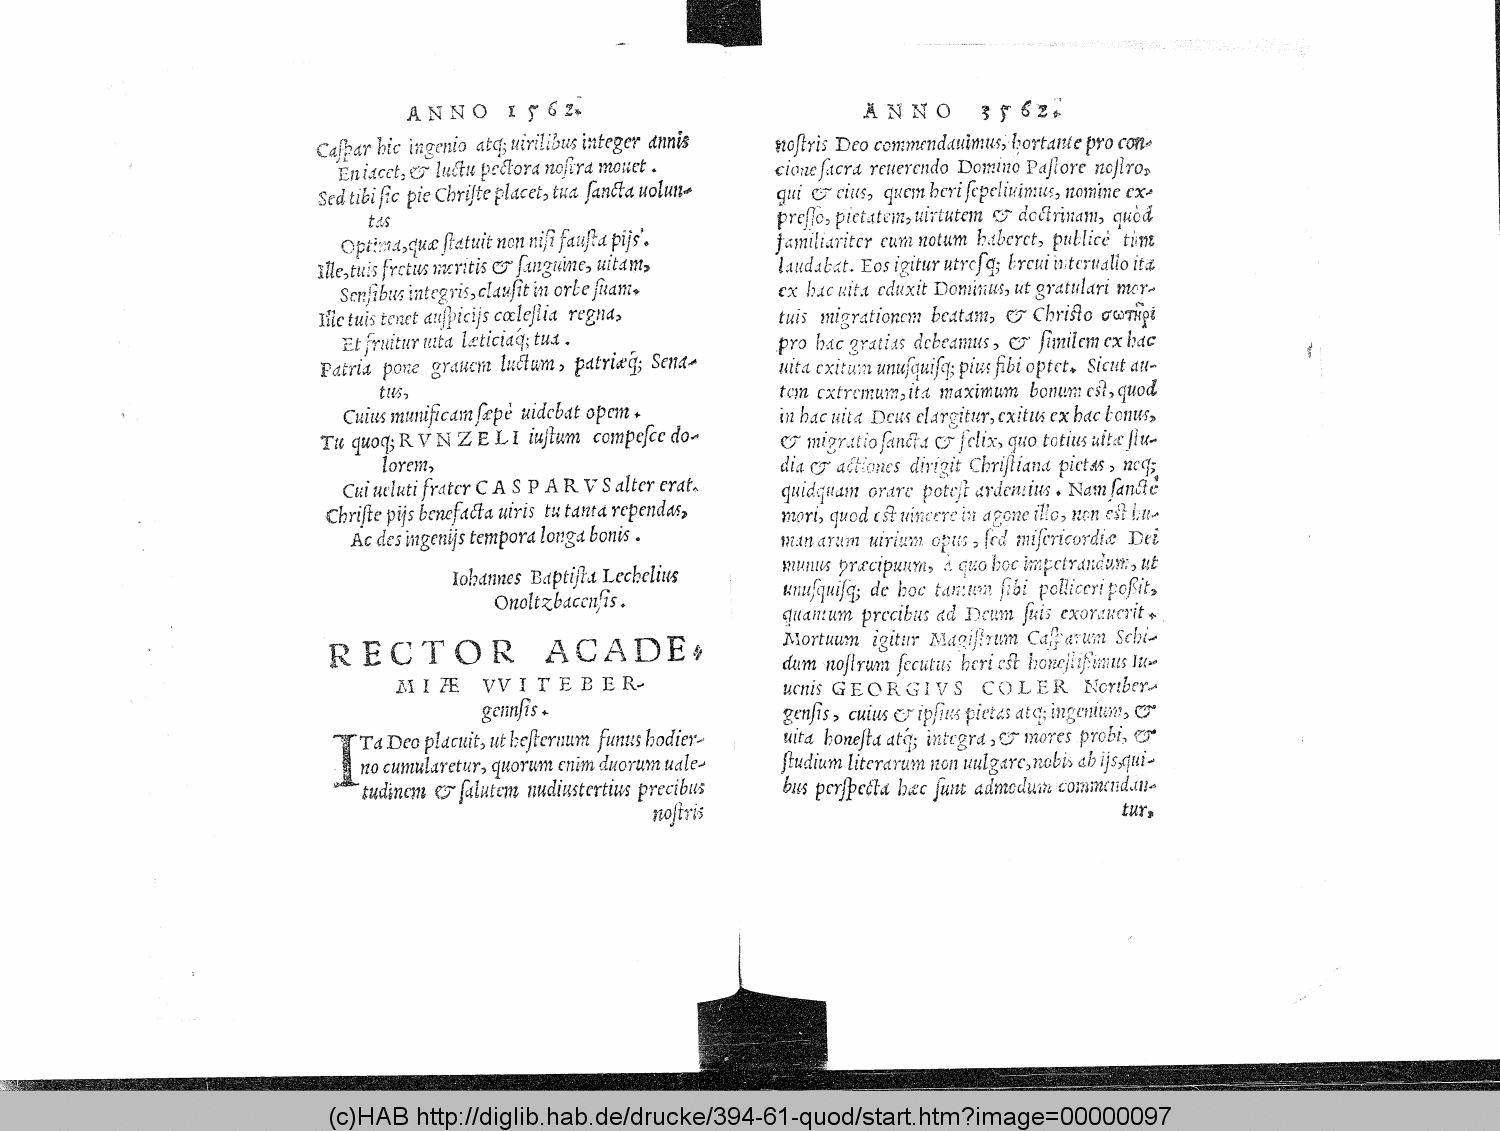 ANNO 1562.
Caſpar hic ingenio atq; uirilibus integer annis
En iacet, & luctu pectora noſtra mouet.
Sed tibi ſic pie Chriſte placet, tua ſancta uolun-
tas
Optima, quæ ſtatuit non niſi fauſta pijs.
Ille, tuis fretus meritis & ſanguine, uitam,
Senſibus integris, clauſit in orbe ſuam.
Ille tuis tenet auſpicijs cœleſtia regna,
Et fruitur uita læticiaq́; tua.
Patria pone grauem luctum, patriæq́; Sena-
tus,
Cuius munificam ſæpè uidebat opem.
Tu quoq; RVNZELI iuſtum compeſce do-
lorem,
Cui ueluti frater CASPARVS alter erat.
Chriſte pijs benefacta uiris tu tanta rependas,
Ac des ingenijs tempora longa bonis.
Iohannes Baptiſta Lechelius
Onoltzbacenſis.
RECTOR ACADE-
MIÆ VVITEBER-
gennſis.
ITa Deo placuit, ut heſternum funus hodier-
no cumularetur, quorum enim duorum uale-
tudinem & ſalutem nudiustertius precibus
noſtris
ANNO 3562.
noſtris Deo commendauimus, hortante pro con-
cione ſacra reuerendo Domino Paſtore noſtro,
qui & eius, quem heri ſepeliuimus, nomine ex-
preſſo, pietatem, uirtutem & doctrinam, quòd
familiariter eum notum haberet, publicè tùm
laudabat. Eos igitur utroſq; breui interuallo ita
ex hac uita eduxit Dominus, ut gratulari mor-
tuis migrationem beatam, & Chriſto σωτῆρι
pro hac gratias debeamus, & ſimilem ex hac
uita exitum unuſquiſq; pius ſibi optet. Sicut au-
tem extremum, ita maximum bonum eſt, quod
in hac uita Deus elargitur, exitus ex hac bonus,
& migratio ſancta & felix, quo totius uitæ ſtu-
dia & actiones dirigit Chriſtiana pietas, neq;
quidquam orare poteſt ardentius. Nam ſanctè
mori, quod eſt uincere in agone illo, non eſt hu-
manarum uirium opus, ſed miſericordiæ Dei
munus præcipuum, à quo hoc impetrandum, ut
unuſquiſq; de hoc tantum ſibi polliceri poßit,
quantum precibus ad Deum ſuis exorauerit.
Mortuum igitur Magiſtrum Caſparum Schi-
dum noſtrum ſecutus heri eſt honeſtißimus Iu-
uenis GEORGIVS COLER Noriber-
genſis, cuius & ipſius pietas atq; ingenium, &
uita honeſta atq́; integra, & mores probi, &
ſtudium literarum non uulgare, nobis ab ijs, qui-
bus perſpecta hæc ſunt admodum commendan-
tur,
(c)HAB http://diglib.hab.de/drucke/394-61-quod/start.htm?image=00000097